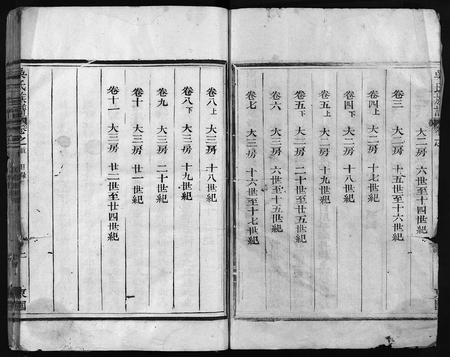 大二房 六世至十四世紀
卷三 大二房 十五世至十六世紀
卷四上 大二房 十七世紀
卷四下 大二房 十八世紀
卷五上 大二房 十九世紀
卷五下 大二房 二十世至廿五世紀
卷六 大三房 六世至十五世紀
卷七 大三房 十六世至十七世紀
卷八上 大三房 十八世紀
卷八下 大三房 十九世紀
卷九 大三房 二十世紀
卷十 大三房 廿一世紀
卷十一 大三房 廿二世至廿四世紀
吳氏族譜